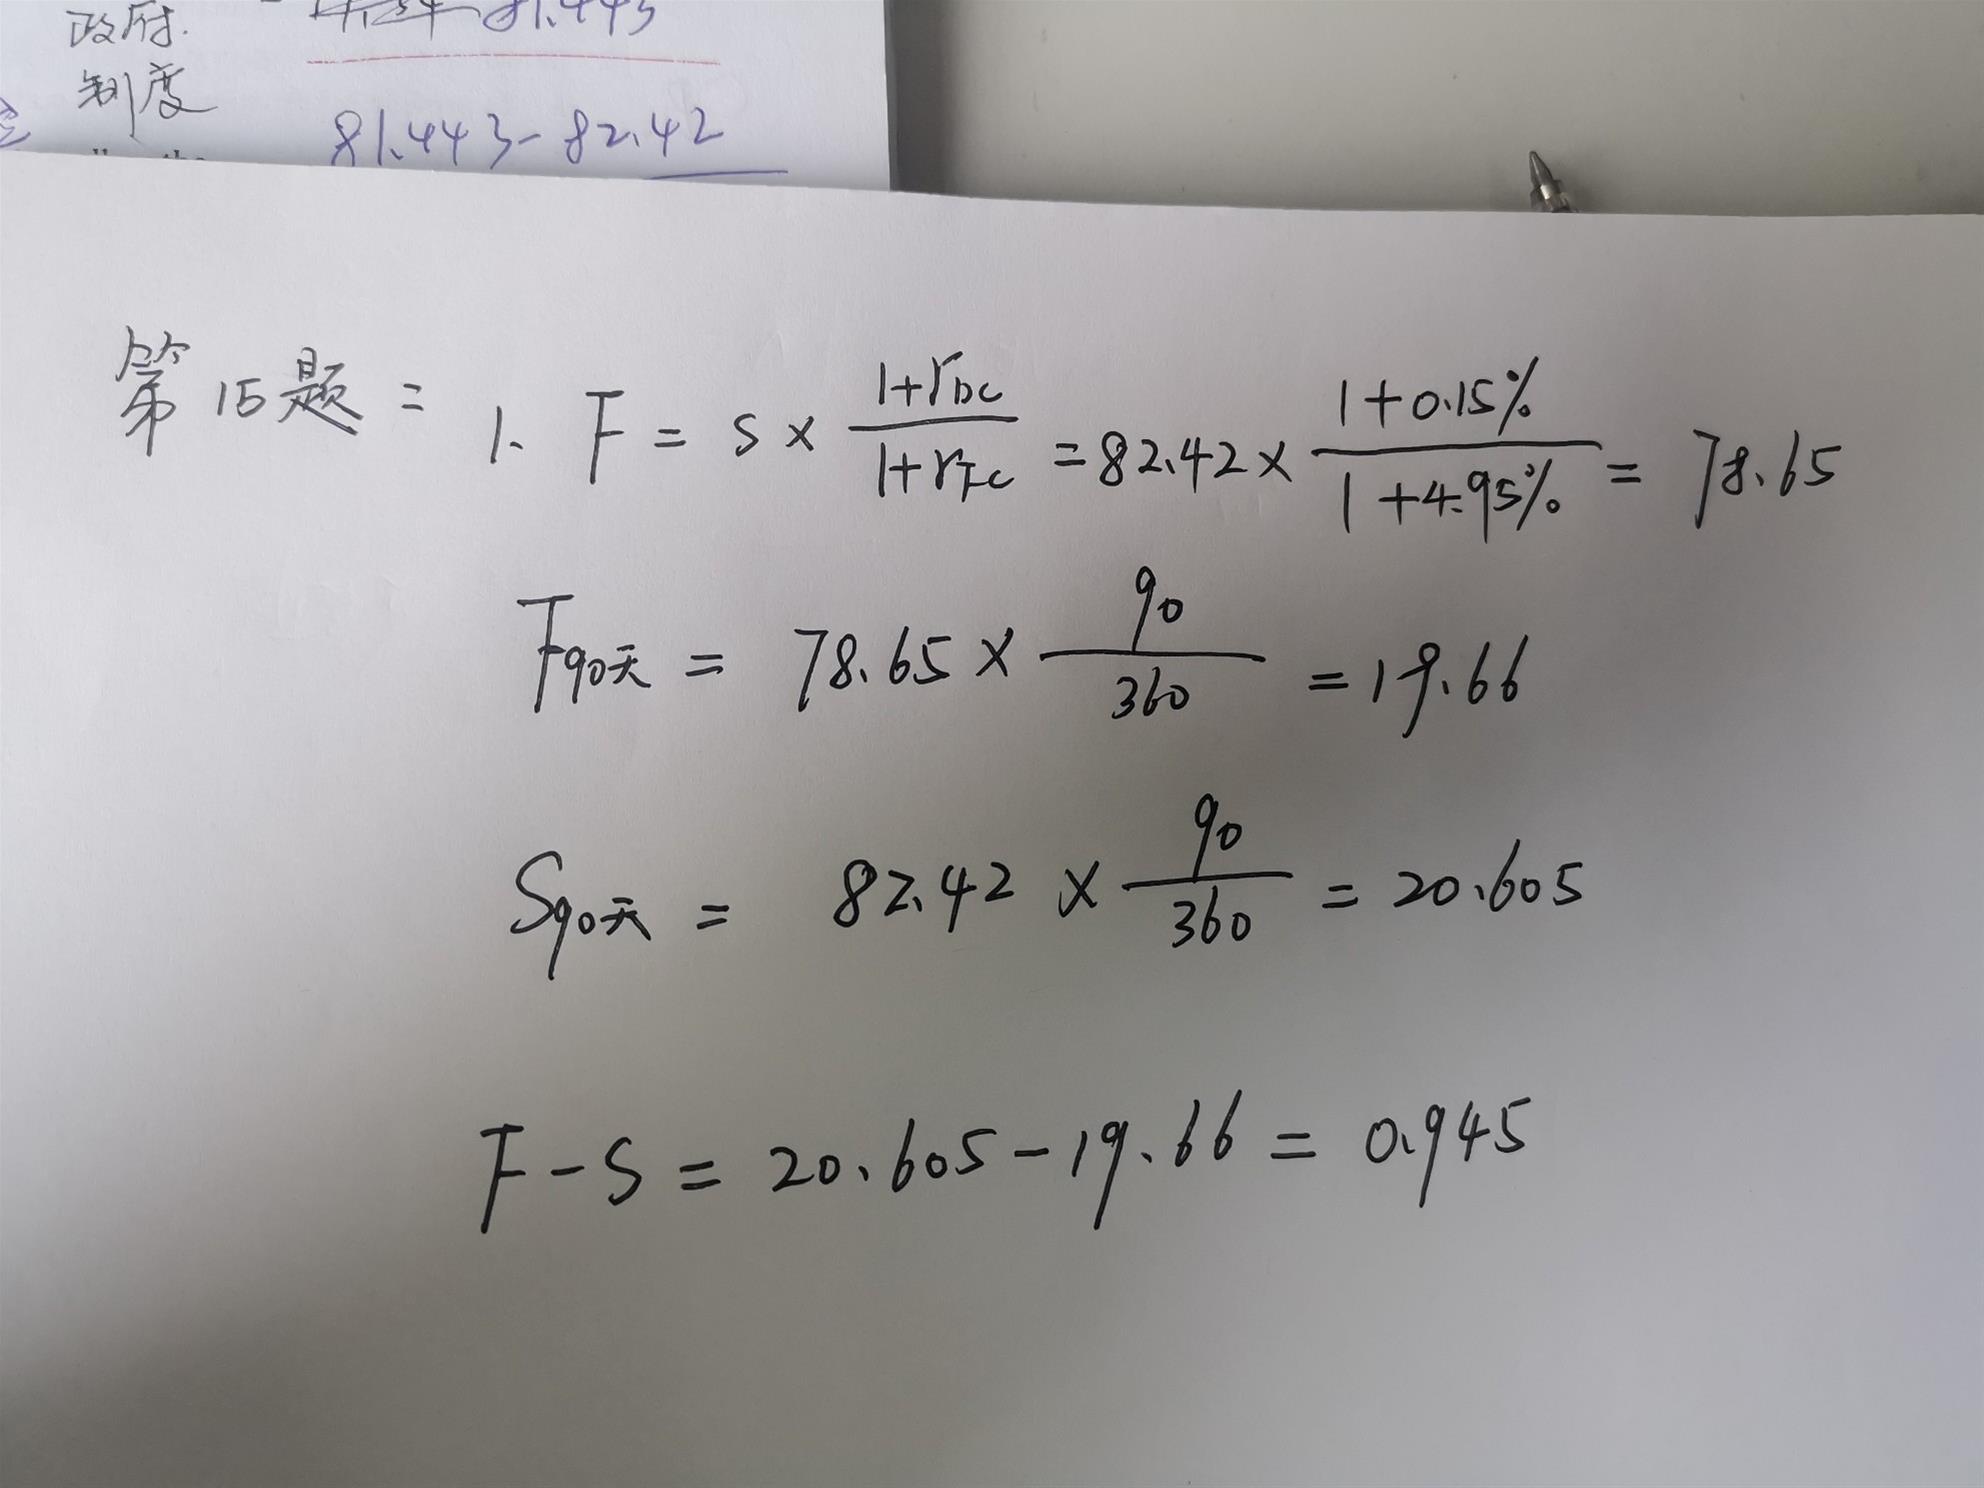 政府.
制度
81.443
81.443-82.42
第15题= 1. F = S × (1+rDC)/(1+rFC) = 82.42 × (1+0.15%)/(1+4.95%) = 78.65
F90天 = 78.65 × 90/360 = 19.66
S90天 = 82.42 × 90/360 = 20.605
F-S = 20.605-19.66 = 0.945